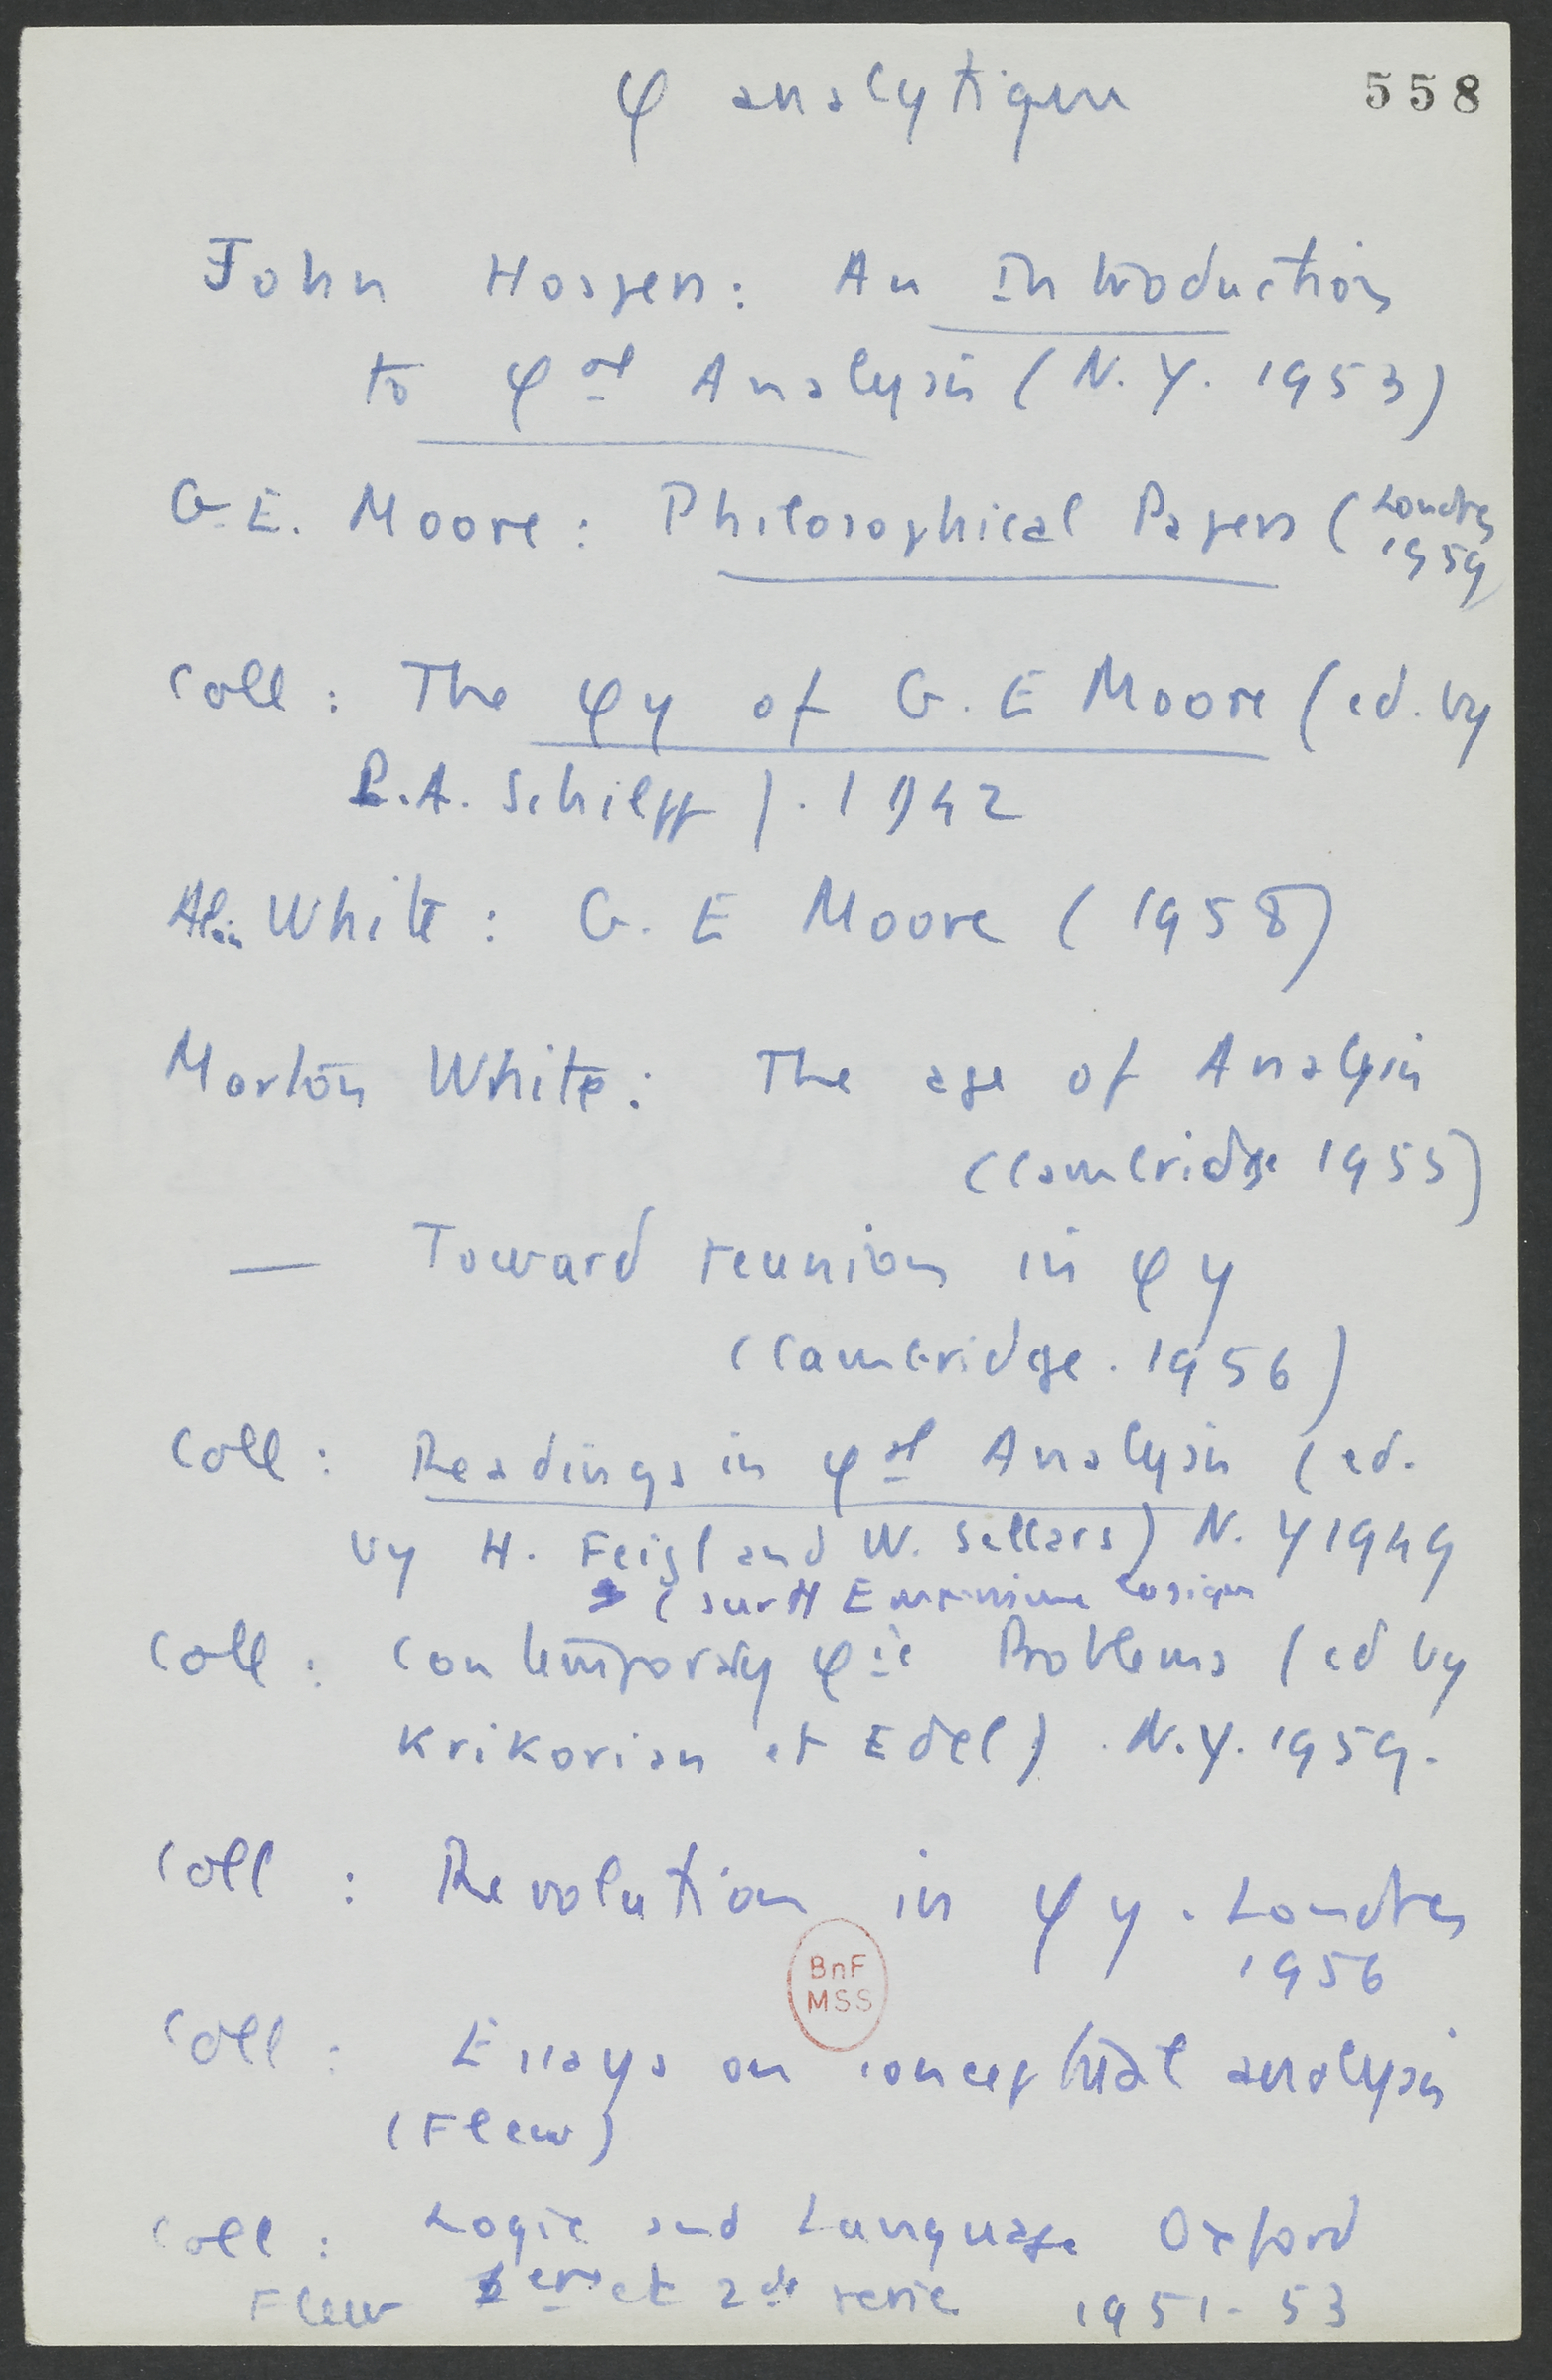 φ analytique
558
John Hospers : An Introduction
to φal Analysis ( N. Y. 1953 )
G. E. Moore : Philosophical Papers ( Londres
1959
Coll : The φy of G. E Moore ( ed. by
P. A. Schilpp ) . 1942
Alan White : G. E Moore ( 1958 )
Morton White : The age of Analysis
( Cambridge 1955 )
— Toward reunion in φy
( Cambridge . 1956 )
Coll : Readings in φal Analysis ( ed.
by H. Feigl and W. Sellars ) N. Y 1949
( surtt Empirisme logique
Coll : Contemporary φic Problems ( ed by
Krikorian et Edel ) . N. Y. 1959 .
Coll : Revolution in φy . Londres
1956
BnF
MSS
Coll : Essays on conceptual analysis
( Flew )
Coll : Logic and Language Oxford
Flew 1ere et 2de serie 1951 - 53